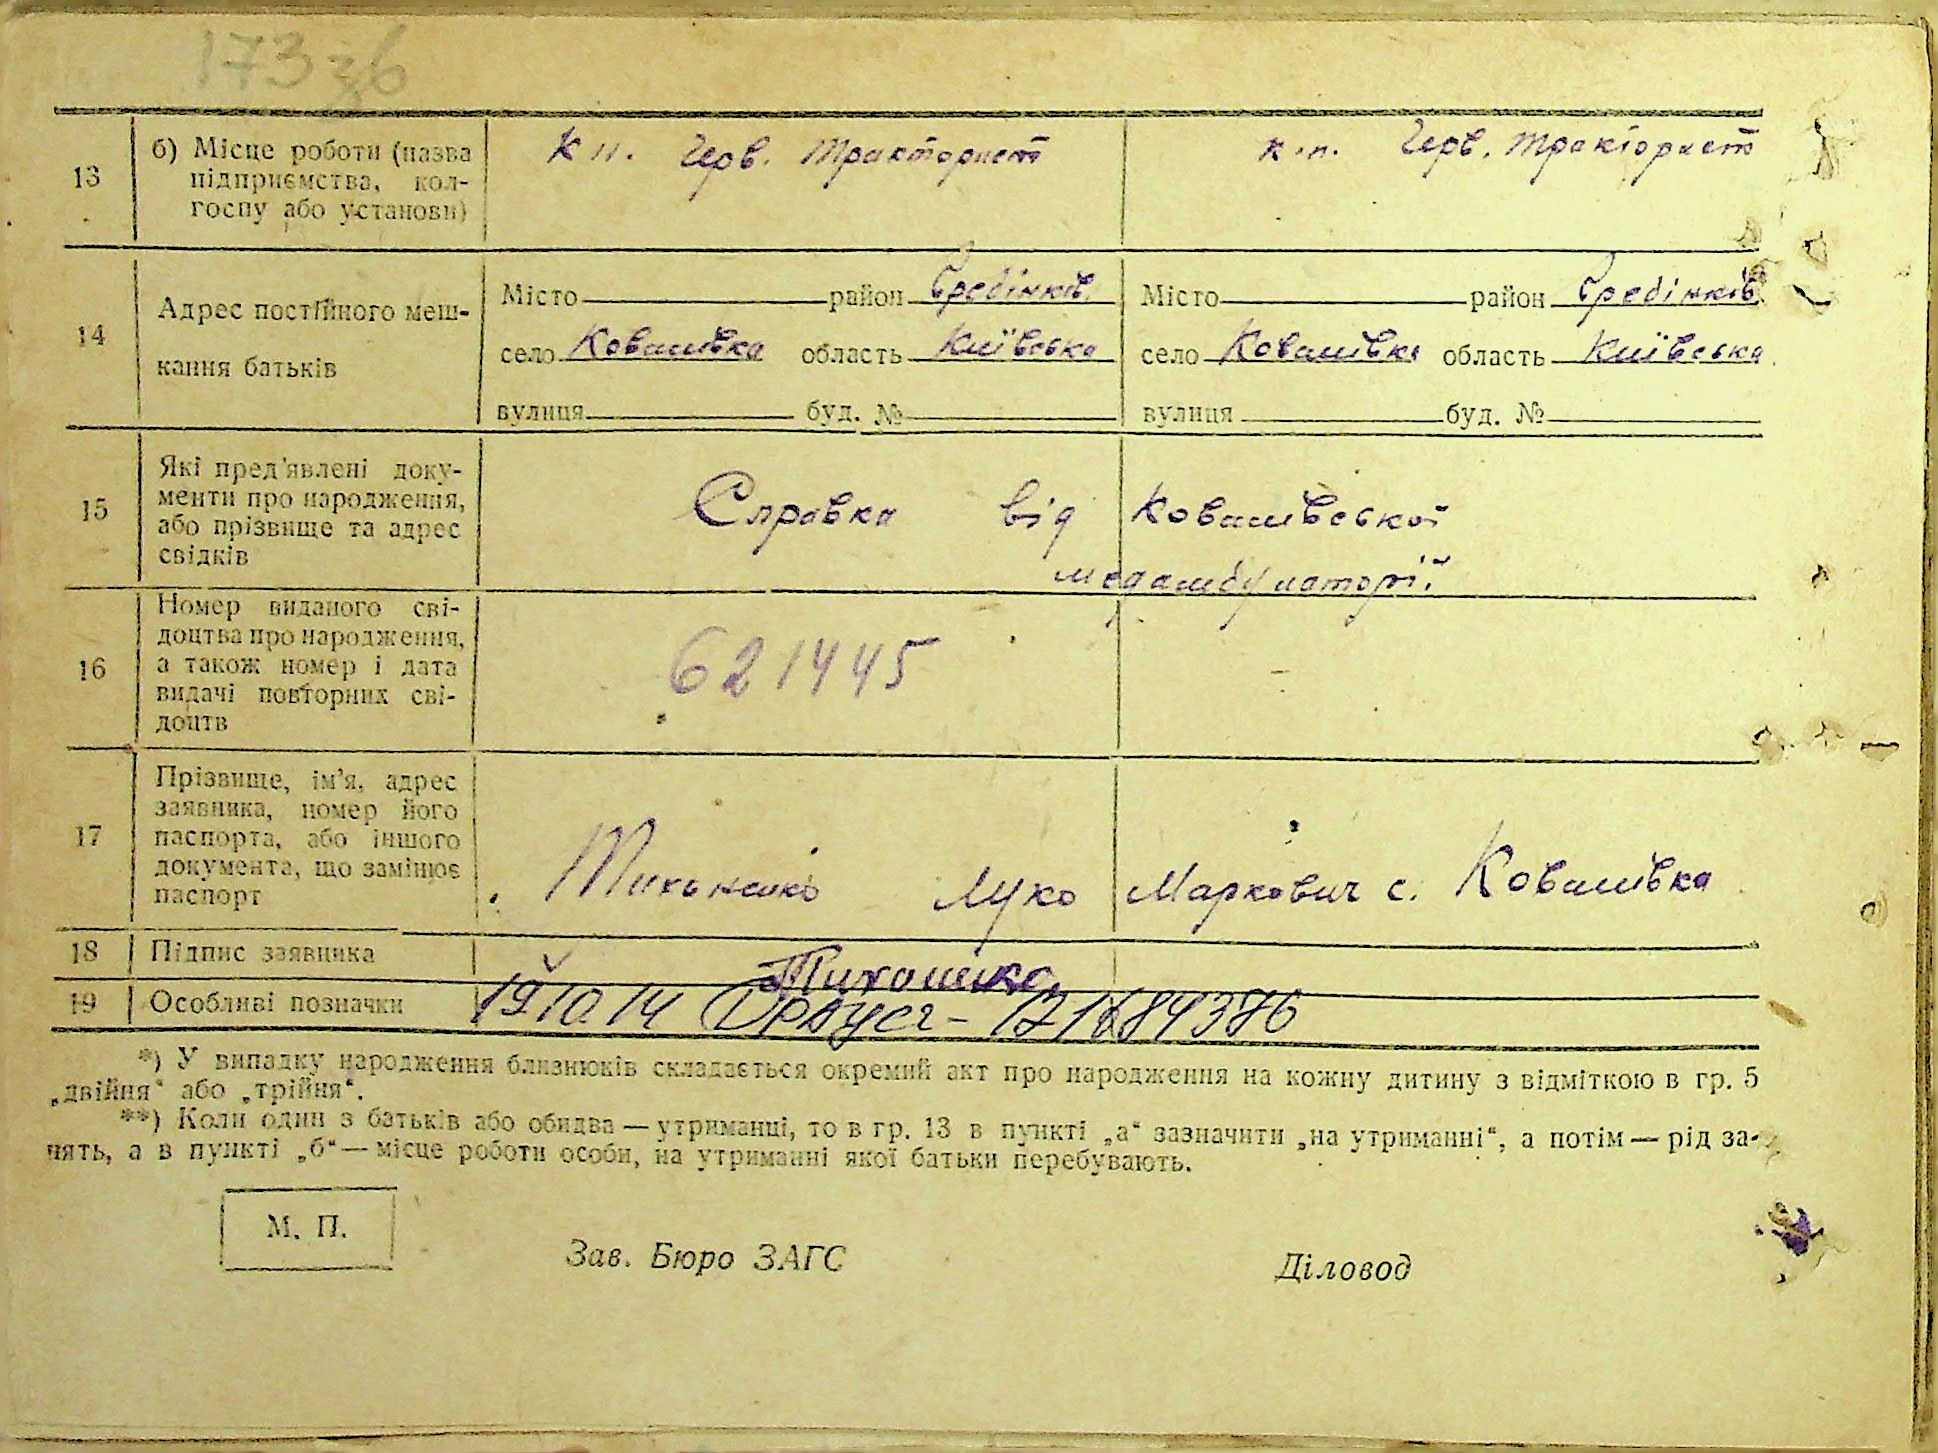 173 зв
13 б) Місце роботи (назва підприємства, колгоспу або установи) Черв. Тракторист Черв. тракторист
14 Адрес постійного меш-
кання батьків
Місто район Гребінків. Місто район Гребінків.
село Ковалівка область Київська село Ковалівка область Київська
вулиця буд. № вулиця буд. №
15 Які пред'явлені доку-
менти про народження,
або прізвище та адрес
свідків
Справка від Ковалівської
медамбулаторії.
16 Номер виданого сві-
доцтва про народження,
а також номер і дата
видачі повторних сві-
доцтв
621445
17 Прізвище, ім'я, адрес
заявника, номер його
паспорта, або іншого
документа, що замінює
паспорт
Луко Маркович с. Ковалівка
18 Підпис заявника
19 Особливі позначки
*) У випадку народження близнюків складається окремий акт про народження на кожну дитину з відміткою в гр. 5
„двійня“ або „трійня“.
**) Коли один з батьків або обидва — утриманці, то в гр. 13 в пункті „а“ зазначити „на утриманні“, а потім — рід за-
нять, а в пункті „б“ — місце роботи особи, на утриманні якої батьки перебувають.
М. П.
Зав. Бюро ЗАГС Діловод